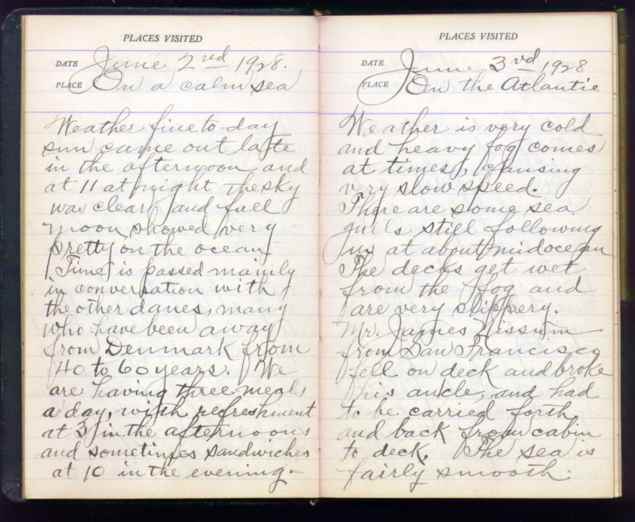 PLACES VISITED
DATE June 2nd 1928.
PLACE On a calm sea
Weather fine to-day
sun came out late
in the afternoon and
at 11 at night the sky
was clear and full
moon showed very
pretty on the ocean
Time is passed mainly
in conversation with
the other danes, many
who have been away
from Denmark from
40 to 60 years. We
are having three meals
a day, with refreshment
at 3 in the afternoons
and sometimes sandwiches
at 10 in the evening.
PLACES VISITED
DATE June 3rd 1928
PLACE On the Atlantic
Weather is very cold
and heavy fog comes
at times, causing
very slow speed.
There are some sea
gulls still following
us at about midocean
The decks get wet
from the fog and
are very slippery.
Mr. James
from San Francisco
fell on deck and broke
his ancle, and had
to be carried forth
and back from cabin
to deck. The sea is
fairly smooth.